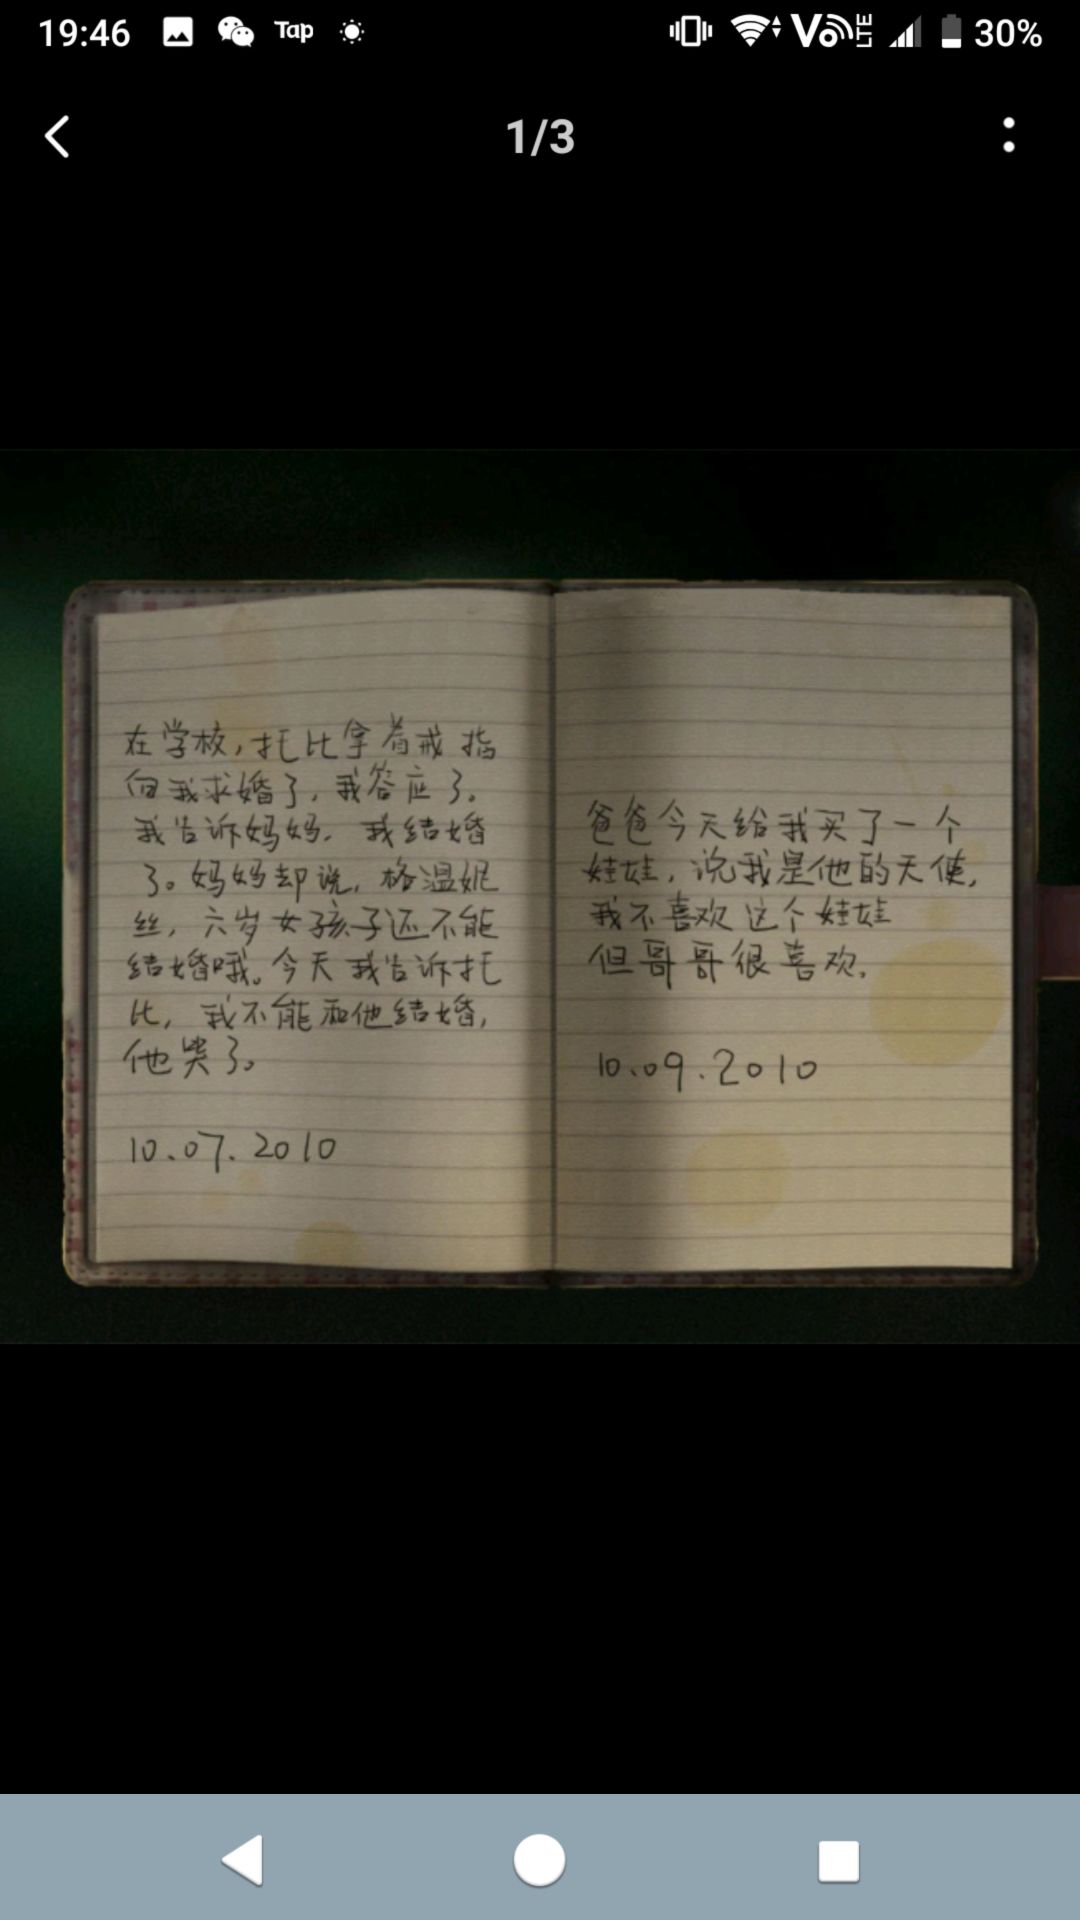 19:46 Tap VoLTE 30%
1/3
在学校,托比拿着戒指
向我求婚了,我答应了。
我告诉妈妈,我结婚
了。妈妈却说,格温妮
丝,六岁女孩子还不能
结婚哦。今天我告诉托
比,我不能和他结婚,
他哭了。
10.07.2010
爸爸今天给我买了一个
娃娃,说我是他的天使,
我不喜欢这个娃娃
但哥哥很喜欢.
10.09.2010